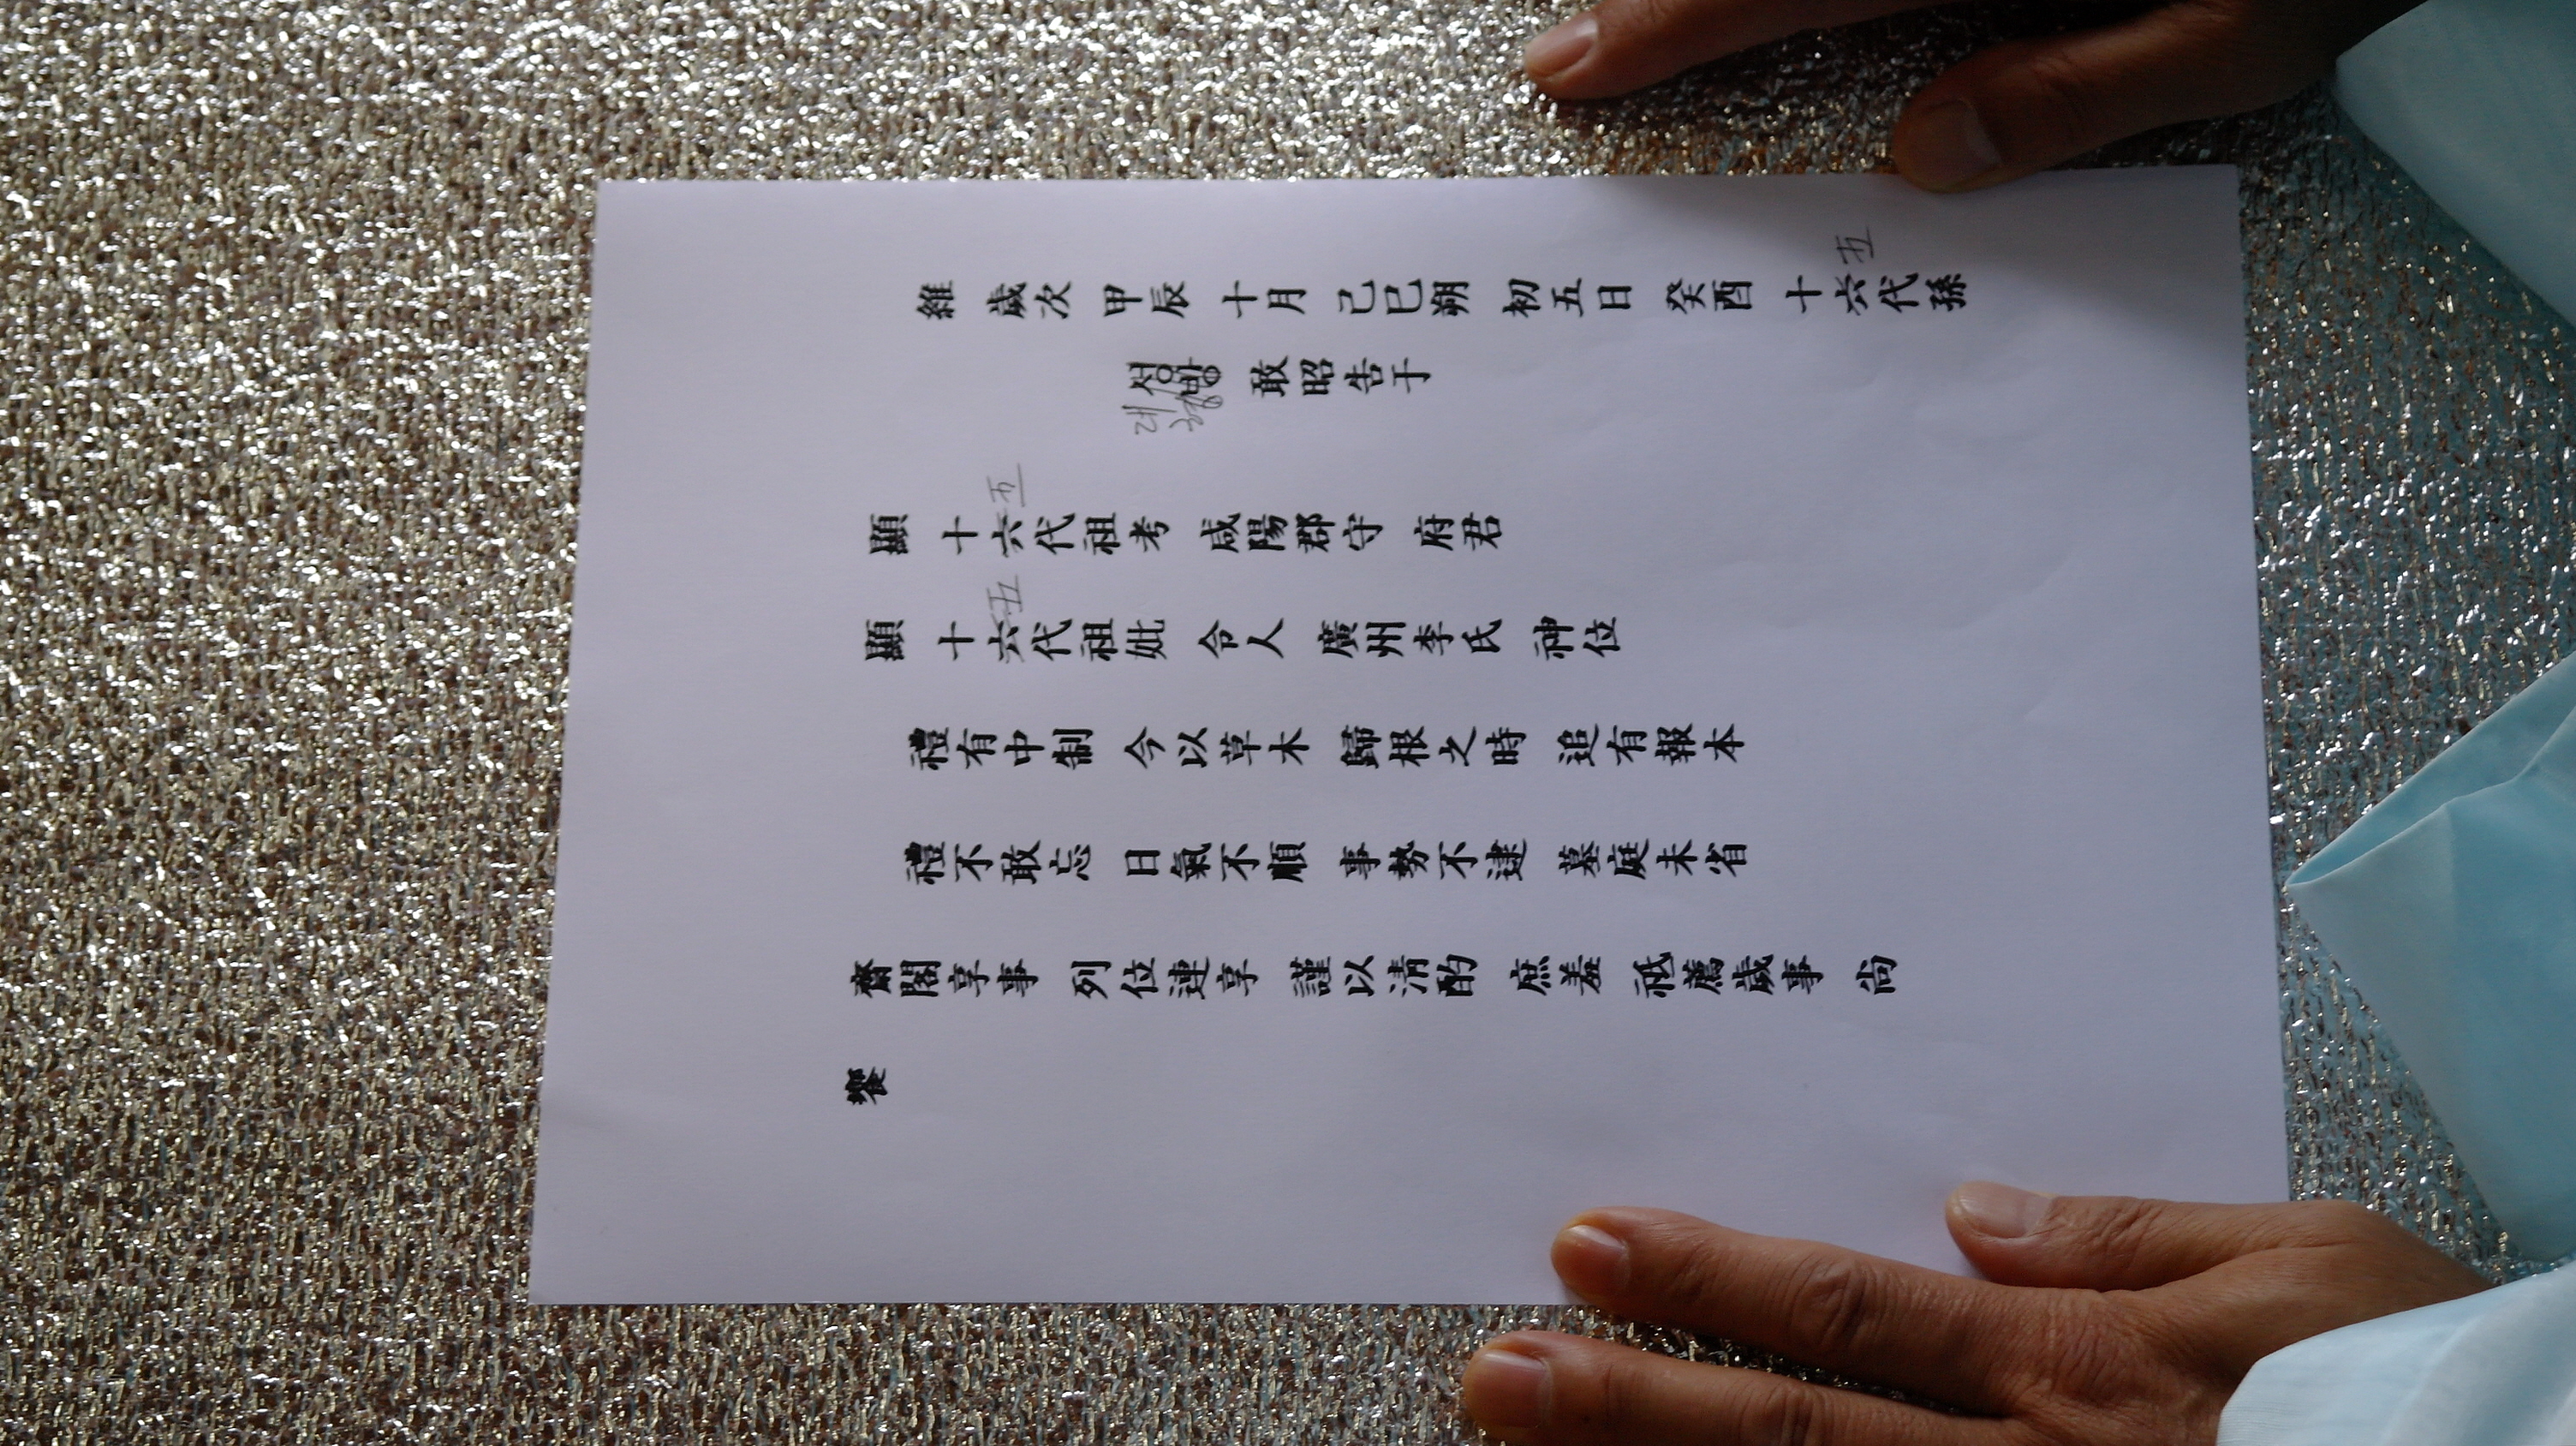 維 歲次 甲辰 十月 己巳朔 初五日 癸酉 十六代孫
五
敢昭告于
五
顯 十六代祖考 咸陽郡守 府君
五
顯 十六代祖妣 令人 廣州李氏 神位
禮有中制 今以草木 歸根之時 追有報本
禮不敢忘 日氣不順 事勢不逮 墓庭未省
齋閣享事 列位連享 謹以淸酌 庶羞 祗薦歲事 尙
饗